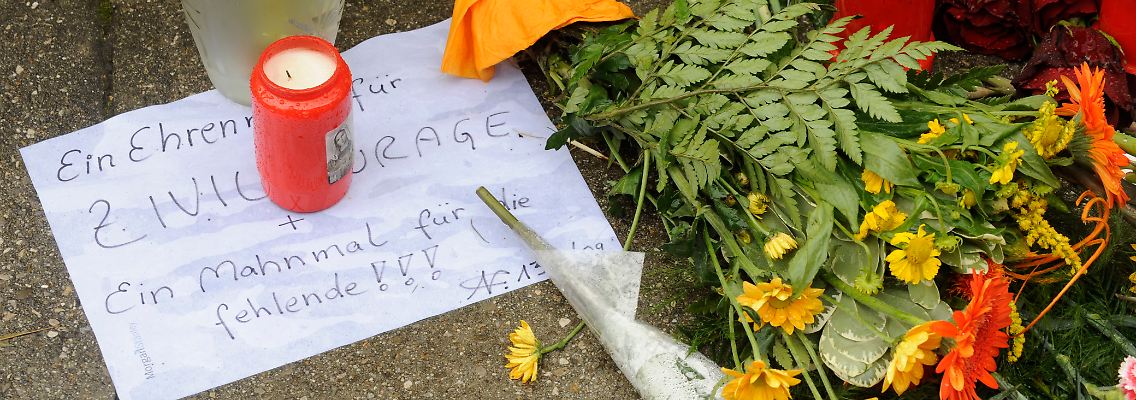 Ein Ehrenm für
ZIVILCOURAGE
+
Ein Mahnmal für die
fehlende!!!